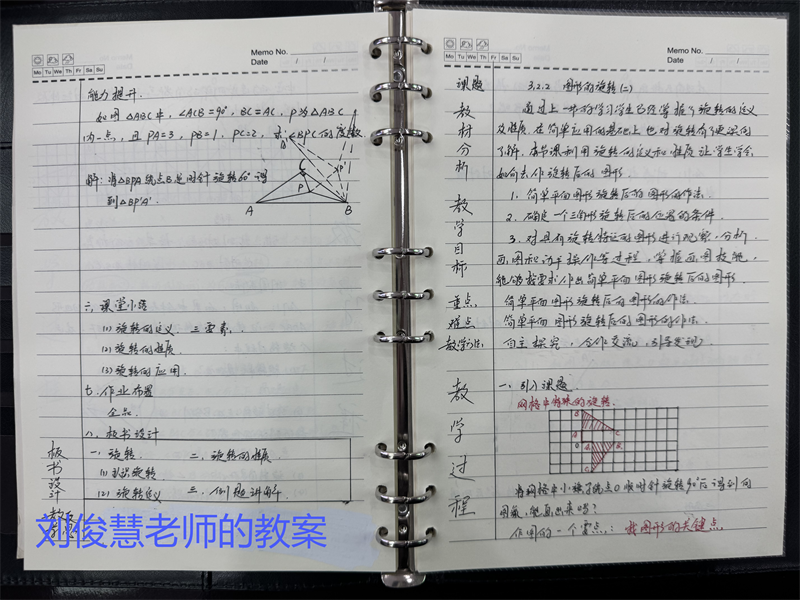 Memo No.
Date / /
Mo Tu We Th Fr Sa Su
能力提升.
如图 △ABC中, ∠ACB=90°, BC=AC, P为△ABC
内一点, 且 PA=3, PB=1, PC=2, 求∠BPC的度数
解: 将△BPA绕点B
旋转
得
到△BP'A'.
A
B
C
P
P'
A'
六. 课堂小结
(1) 旋转的定义 三要素.
(2) 旋转的性质
(3) 旋转的应用
七. 作业布置
全品
八. 板书设计
板书设计
一. 旋转.
二. 旋转的性质
(1) 认识旋转
(2) 旋转定义
三. 例题讲解.
刘俊慧老师的教案
Memo No.
Date / /
Mo Tu We Th Fr Sa Su
课题
3.2.2 图形的旋转(二)
教材分析
通过上一节的学习学生已经掌握了旋转的定义
及性质. 在简单应用的基础上也对旋转有了更深的
了解. 本节课利用旋转的定义和性质让学生学会
如何去作旋转后的图形.
教学目标
1. 简单平面图形旋转后的图形的作法.
2. 确定一个三角形旋转后的位置的条件.
3. 对具有旋转特征的图形进行观察、分析、
画图和动手操作等过程, 掌握画图技能,
能够按要求作出简单平面图形旋转后的图形.
重点
简单平面图形旋转后的图形的作法.
难点
简单平面图形旋转后的图形的作法.
教学方法:
自主探究, 合作交流, 引导发现
教学过程
一. 引入课题.
网格中特殊的旋转.
将网格中
绕点O顺时针旋转90°后得到的
图案, 能画出来吗?
作图的一个要点: 找图形的关键点